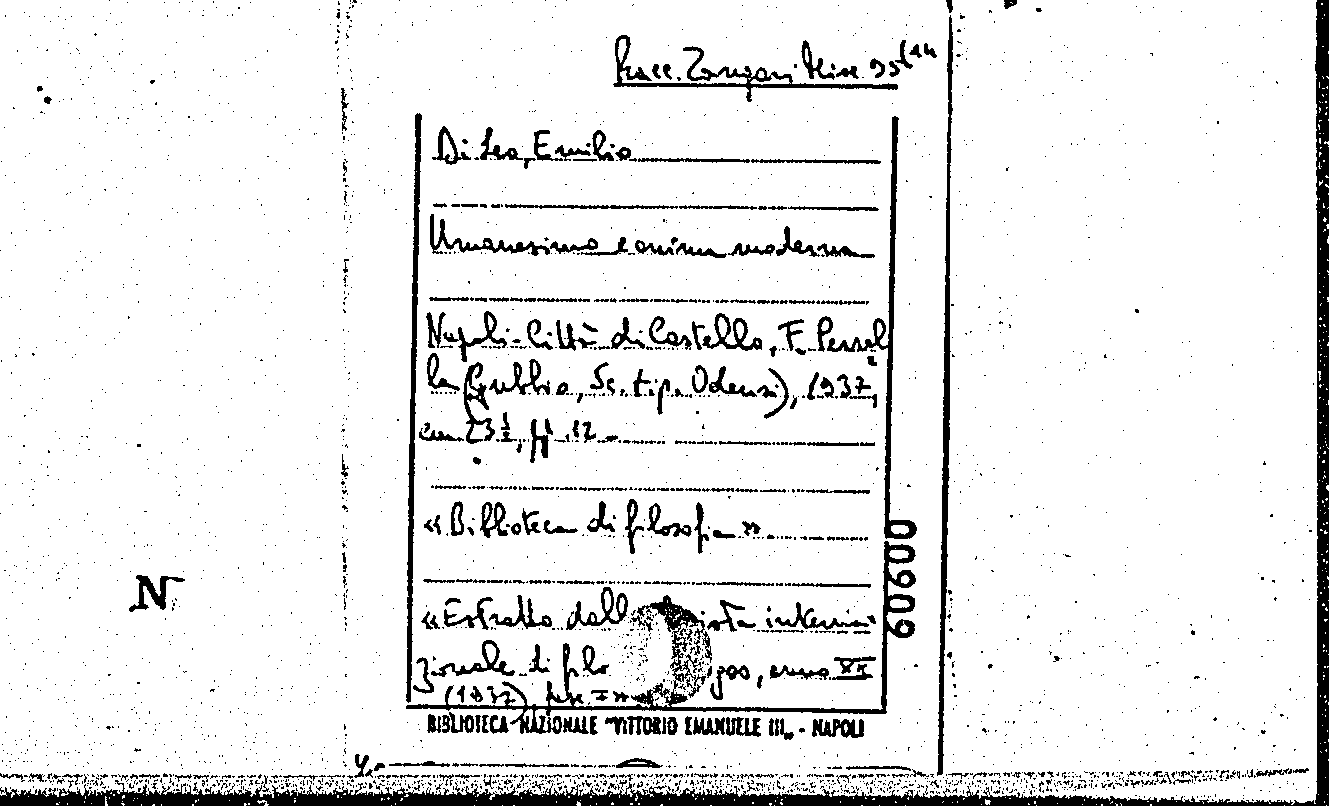 Racc. Zangari Misc. 95(14
Di Leo, Emilio
Umanesimo e anima moderna
Napoli-Città di Castello, F. Perrel=
la (Gubbio, Sc. tip. Oderisi), 1937,
cm 23 ½, pp. 12 -
«Biblioteca di filosofia».
«Estratto dall ista interna=
zionale di filo gos, anno XX
(1937), fasc. I»
60900
N
BIBLIOTECA NAZIONALE "VITTORIO EMANUELE III„ - NAPOLI